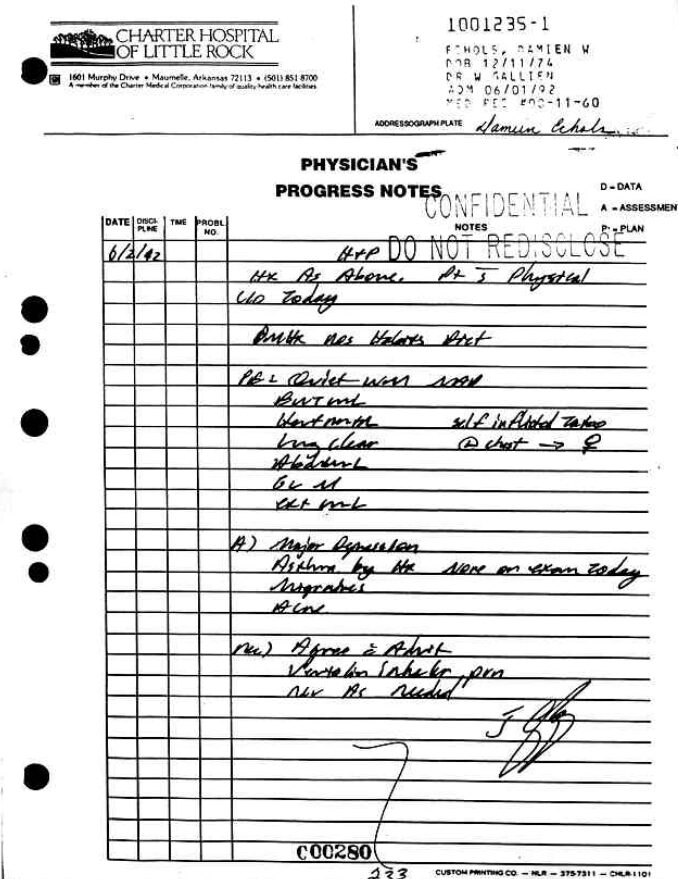 CHARTER HOSPITAL
OF LITTLE ROCK
1601 Murphy Drive • Maumelle, Arkansas 72113 • (501) 851-8700
A member of the Charter Medical Corporation family of quality health care facilities
1001235-1
ECHOLS, DAMIEN W
DOB 12/11/74
DR W GALLIEN
ADM 06/01/92
MED REC #00-11-60
ADDRESSOGRAPH PLATE Damien Echols
PHYSICIAN'S
PROGRESS NOTES
CONFIDENTIAL
DO NOT REDISCLOSE
D - DATA
A - ASSESSMENT
P - PLAN
DATE DISCI-PLINE TIME PROBL. NO. NOTES
6/2/92 H+P
Hx As Above. Pt s Physical
c/o Today
PMHx
PE: Quiet WM NAD
self inflicted Tatoo
Lung clear @ chest → ♀
ext
A) Major Depression
Asthma by Hx None on exam Today
Migraines
Acne
Rec) Agree c Admit
Ventolin Inhaler prn
As needed
C00280
233
CUSTOM PRINTING CO. — NLR — 375-7311 — CHLR-1101